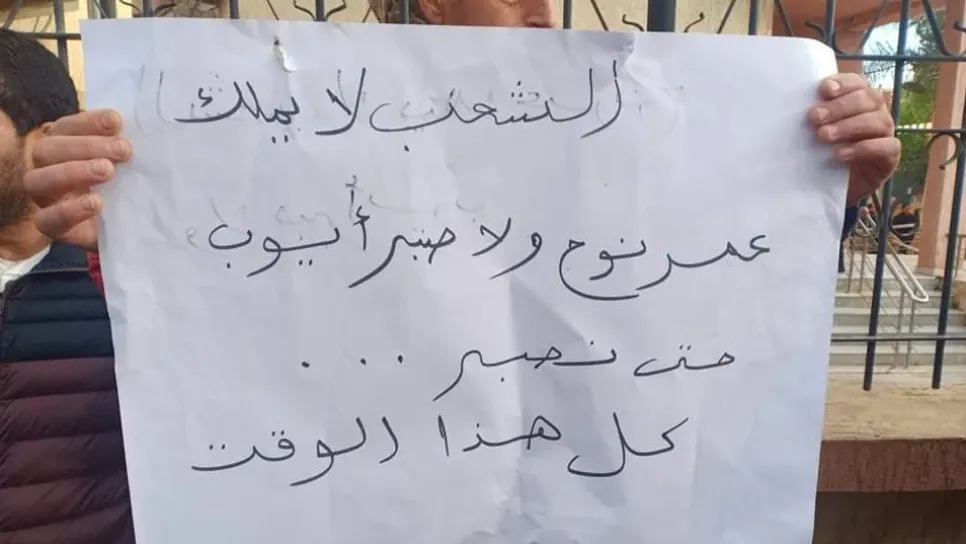 الشعب لا يملك
عمر نوح ولا صبر أيوب
حتى نصبر ...
كل هذا الوقت